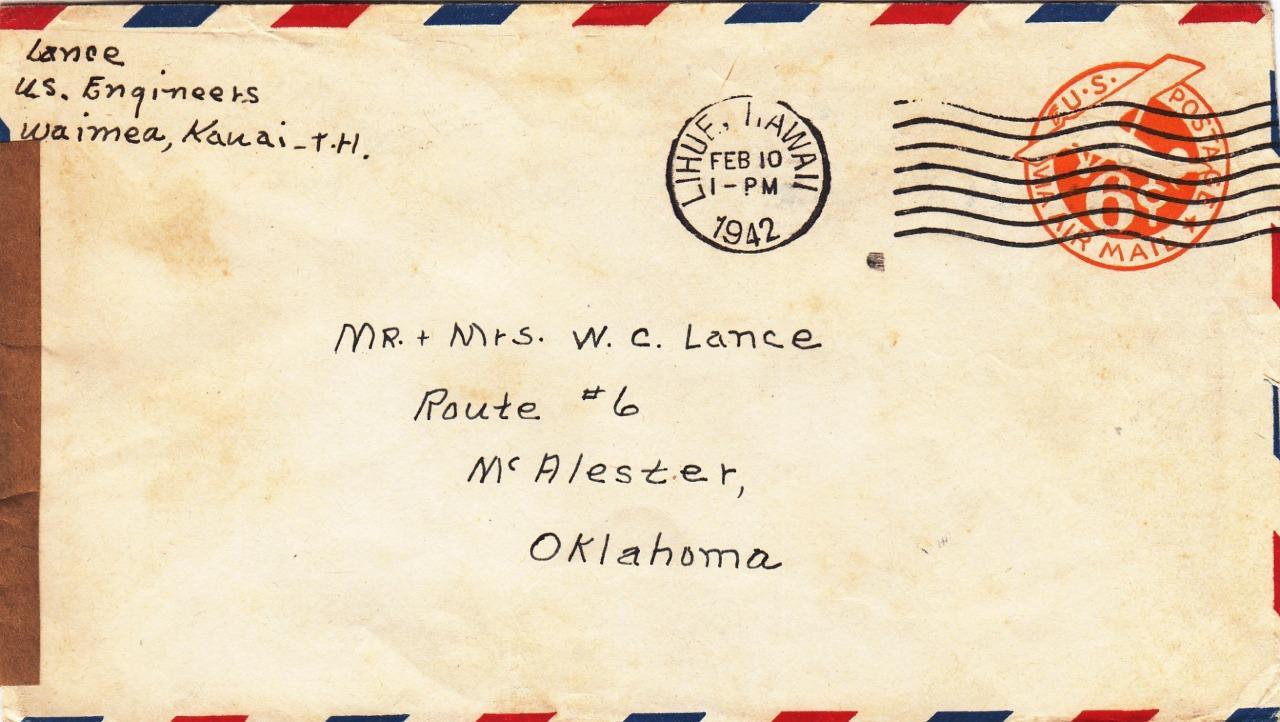 Lance
U.S. Engineers
Waimea, Kauai - T.H.
LIHUE, HAWAII
FEB 10
1-PM
1942
U.S. POSTAGE
6¢
VIA AIR MAIL
MR. + Mrs. W. C. Lance
Route #6
McAlester,
Oklahoma